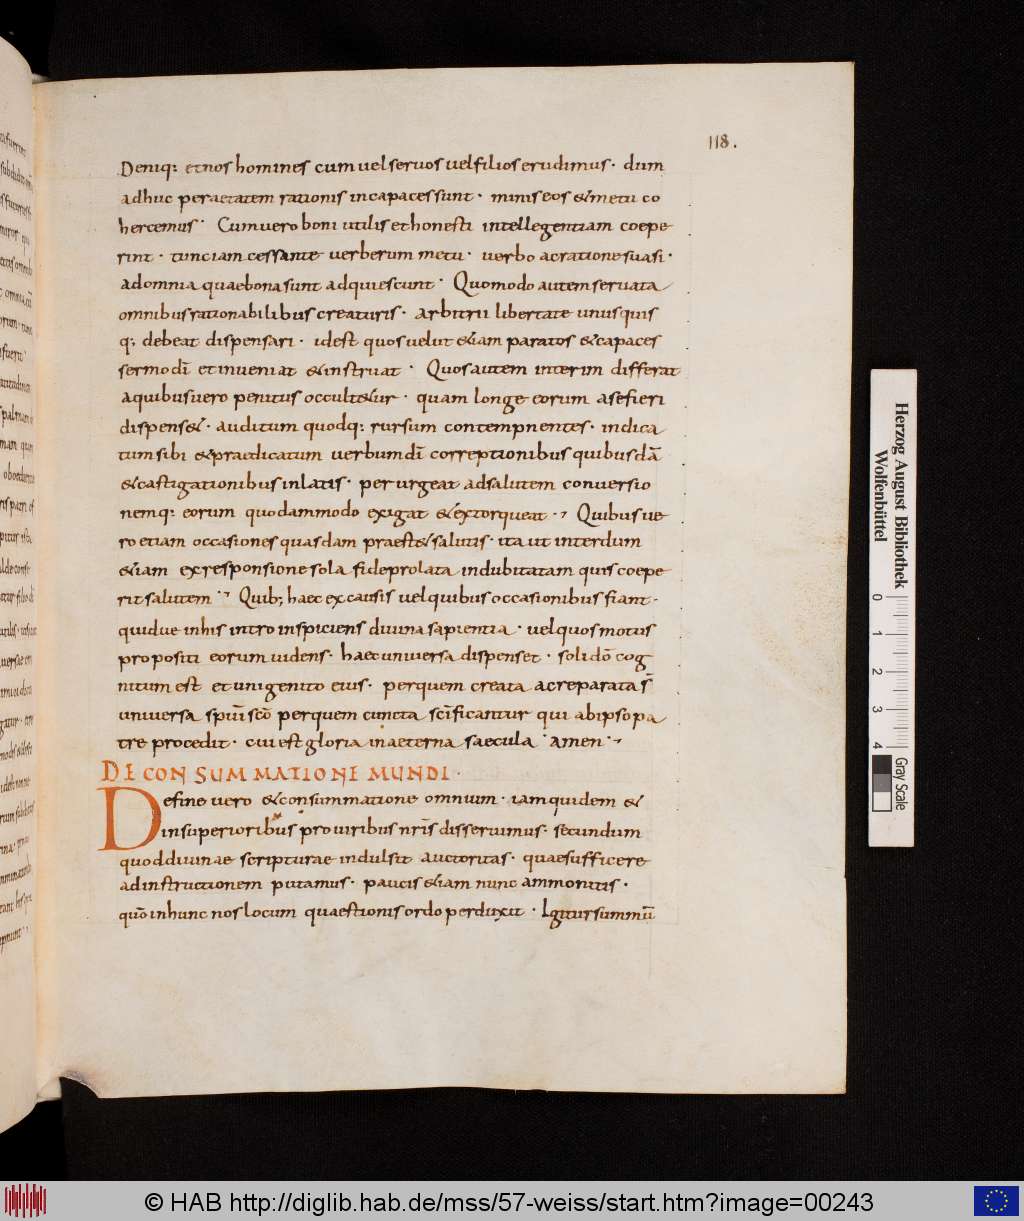 118.
Deniq: et nos homines cum uel seruos uel filios erudimus · dum
adhuc per aetatem rationis incapaces sunt · minis eos & metu co
hercemus · Cum uero boni utilis et honesti intellegentiam coepe
rint · tunc iam cessante uerberum metu · uerbo ac ratione suasi ·
ad omnia quae bona sunt adquiescunt · Quomodo autem seruata
omnibus rationabilibus creaturis · arbitrii libertate unusquis
q: debeat dispensari · id est quos uelut &iam paratos & capaces
sermo dī et inueniat & instruat · Quos autem interim differat
a quibus uero penitus occult&ur · quam longe eorum a se fieri
dispens& · auditum quodq: rursum contempnentes · indica
tum sibi & praedicatum uerbum dī correptionibus quibusdā
& castigationibus inlatis · perurgeat ad salutem conuersio
nemq: eorum quodammodo exigat & extorqueat · Quibus ue
ro etiam occasiones quasdam praest& salutis · ita ut interdum
&iam ex responsione sola fide prolata indubitatam quis coepe
rit salutem · Quib; haec ex causis uel quibus occasionibus fiant ·
quidue in his intro inspiciens diuina sapientia · uel quos motus
propositi eorum uidens · haec uniuersa dispenset · soli dō cog
nitum est et unigenito eius · per quem creata ac reparata s̄
uniuersa spūi scō per quem cuncta scīficantur qui ab ipso pa
tre procedit · cui est gloria in aeterna saecula · amen ·
DE CONSUMMATIONE MUNDI ·
De fine uero & consummatione omnium · iam quidem &
in superioribus pro uiribus nrīs disseruimus · secundum
quod diuinae scripturae indulsit auctoritas · quae sufficere
ad instructionem putamus · paucis &iam nunc ammonitis ·
quō in hunc nos locum quaestionis ordo perduxit · Igitur summū
Herzog August Bibliothek
Wolfenbüttel
0 1 2 3 4
Gray Scale
© HAB http://diglib.hab.de/mss/57-weiss/start.htm?image=00243